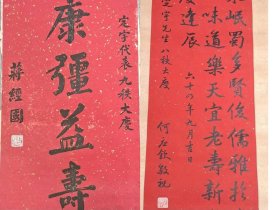 康彊益壽
定宇代表九秩大慶
蔣經國
岷蜀多賢俊儒雅
味道樂天宜老壽新
度逢辰
定宇先生八秩大慶
六十八年九月吉日
何應欽敬祝